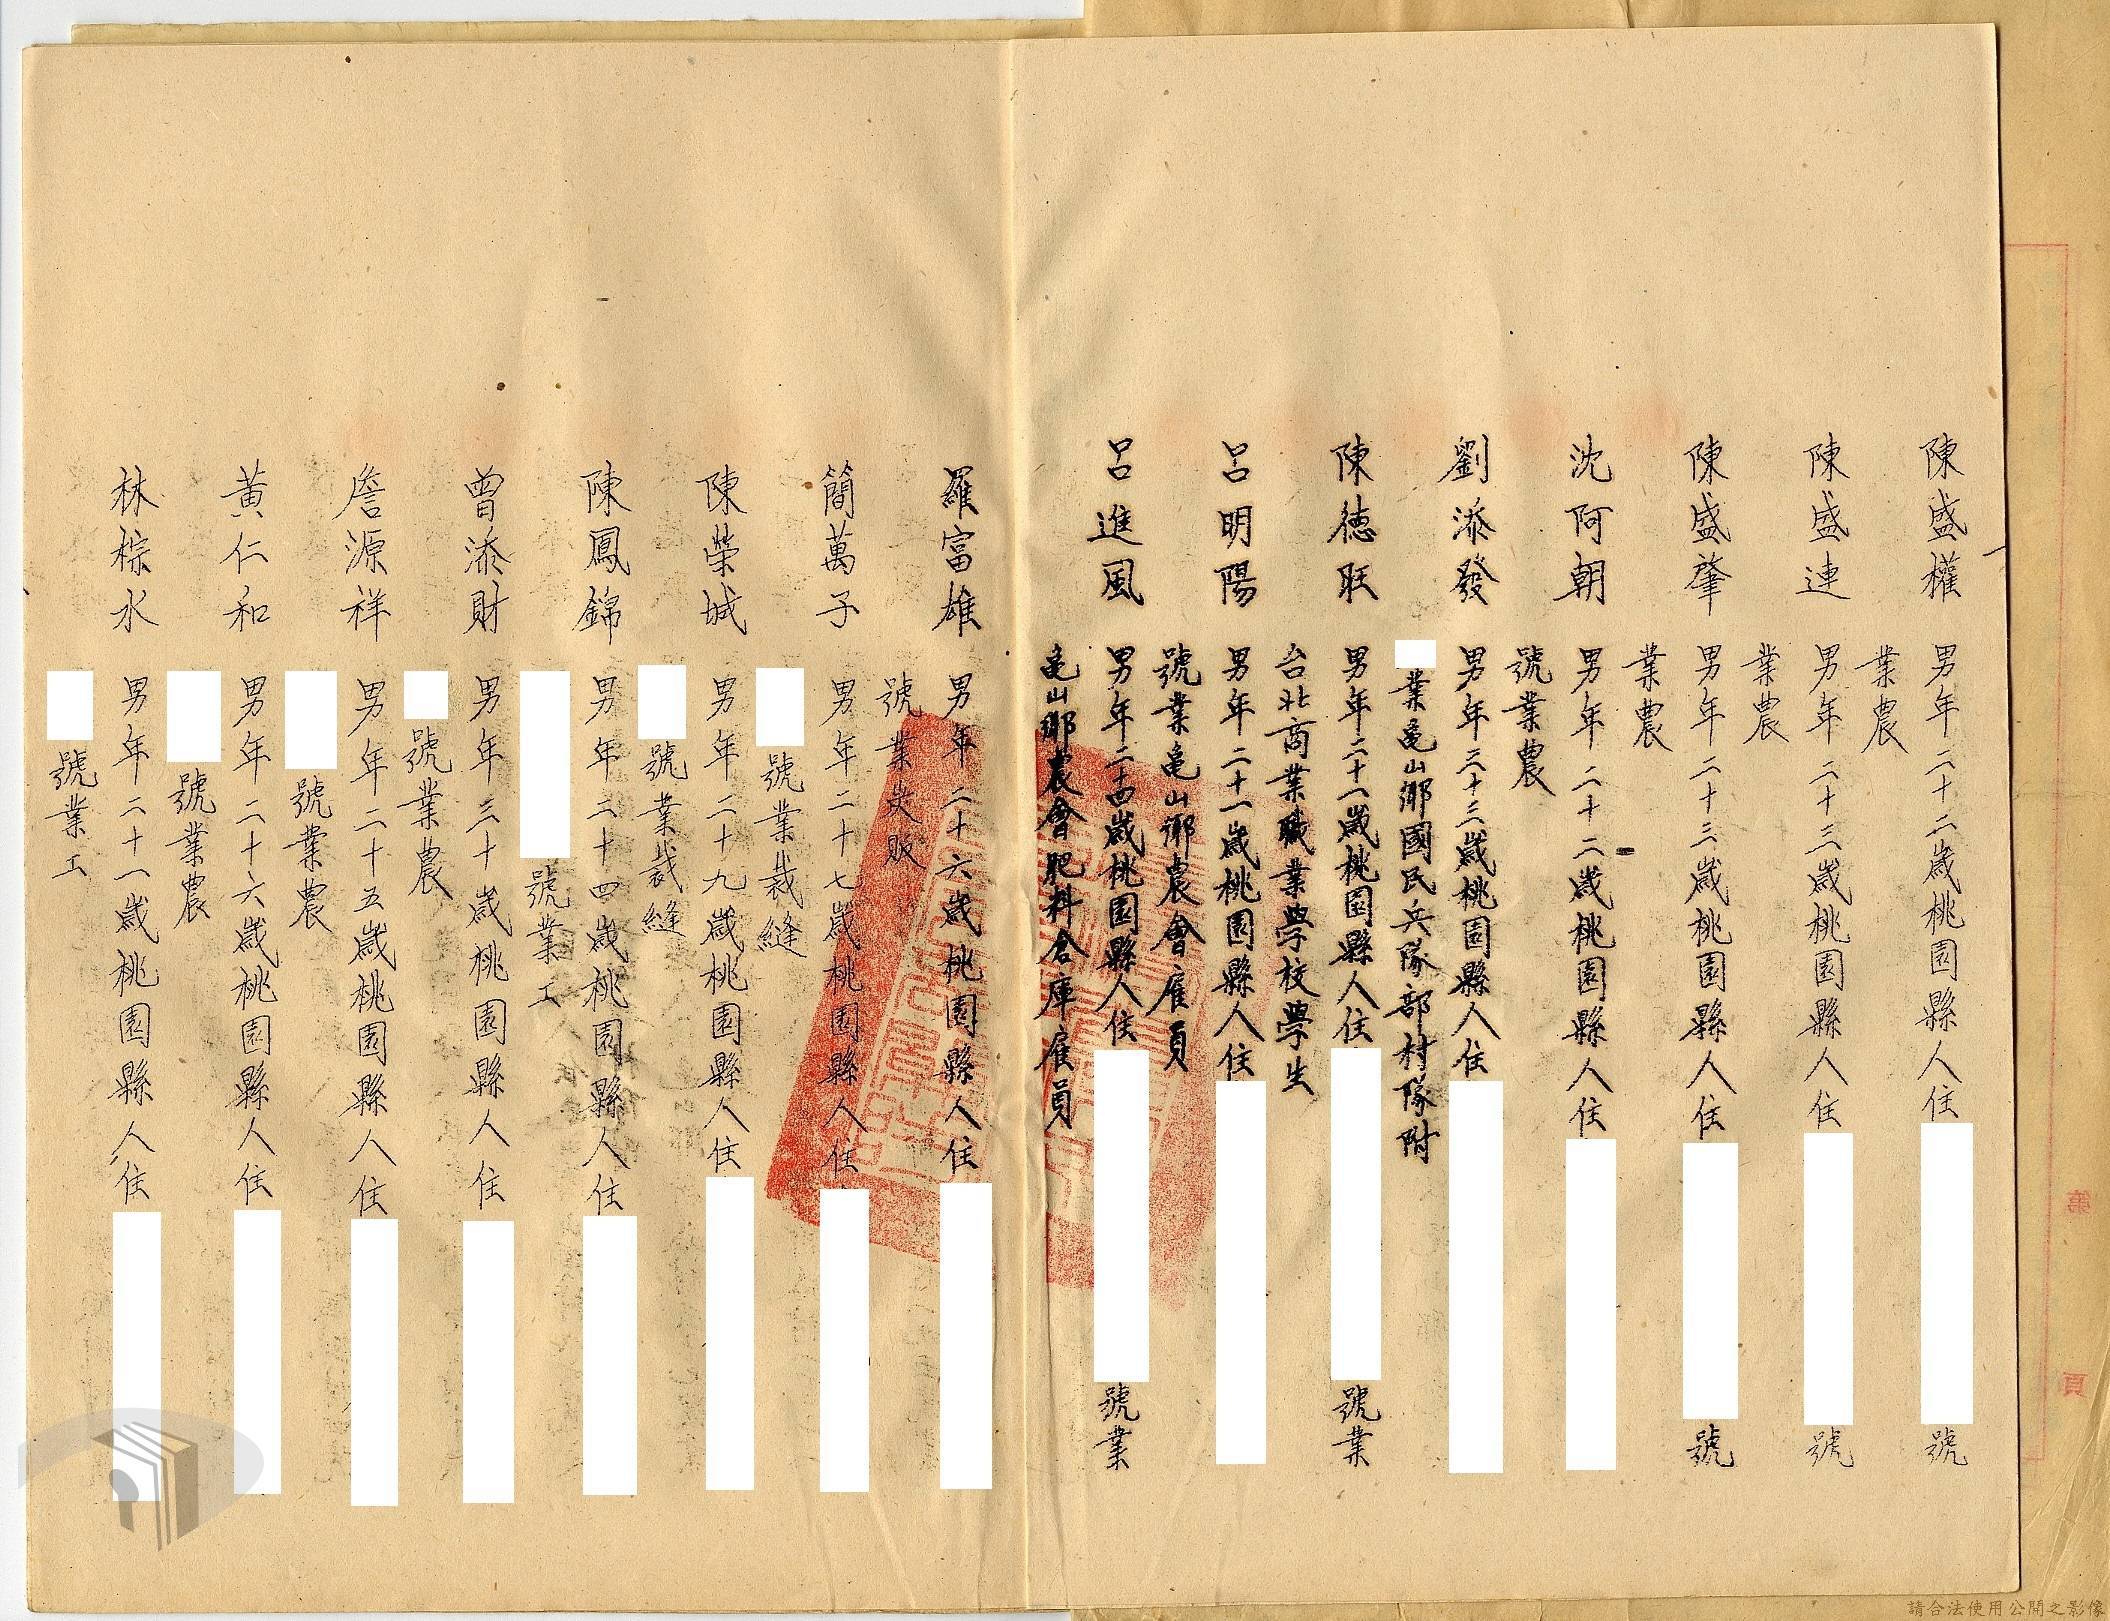 陳盛權 男年二十二歲桃園縣人住 號
業農
陳盛連 男年二十三歲桃園縣人住 號
業農
陳盛肇 男年二十三歲桃園縣人住 號
業農
沈阿朝 男年二十二歲桃園縣人住
號業農
劉添發 男年三十三歲桃園縣人住
業龜山鄉國民兵隊部村隊附
陳德旺 男年二十一歲桃園縣人住 號業
台北商業職業學校學生
呂明陽 男年二十一歲桃園縣人住
號業龜山鄉農會雇員
呂進風 男年二十四歲桃園縣人住 號業
龜山鄉農會肥料倉庫雇員
羅富雄 男年二十六歲桃園縣人住
號業炭販
簡萬子 男年二十七歲桃園縣人住
號業裁縫
陳榮城 男年二十九歲桃園縣人住
號業裁縫
陳鳳錦 男年三十四歲桃園縣人住
號業工
曾添財 男年三十歲桃園縣人住
號業農
詹源祥 男年二十五歲桃園縣人住
號業農
黃仁和 男年二十六歲桃園縣人住
號業農
林棕水 男年二十一歲桃園縣人住
號業工
第 頁
請合法使用公開之影像